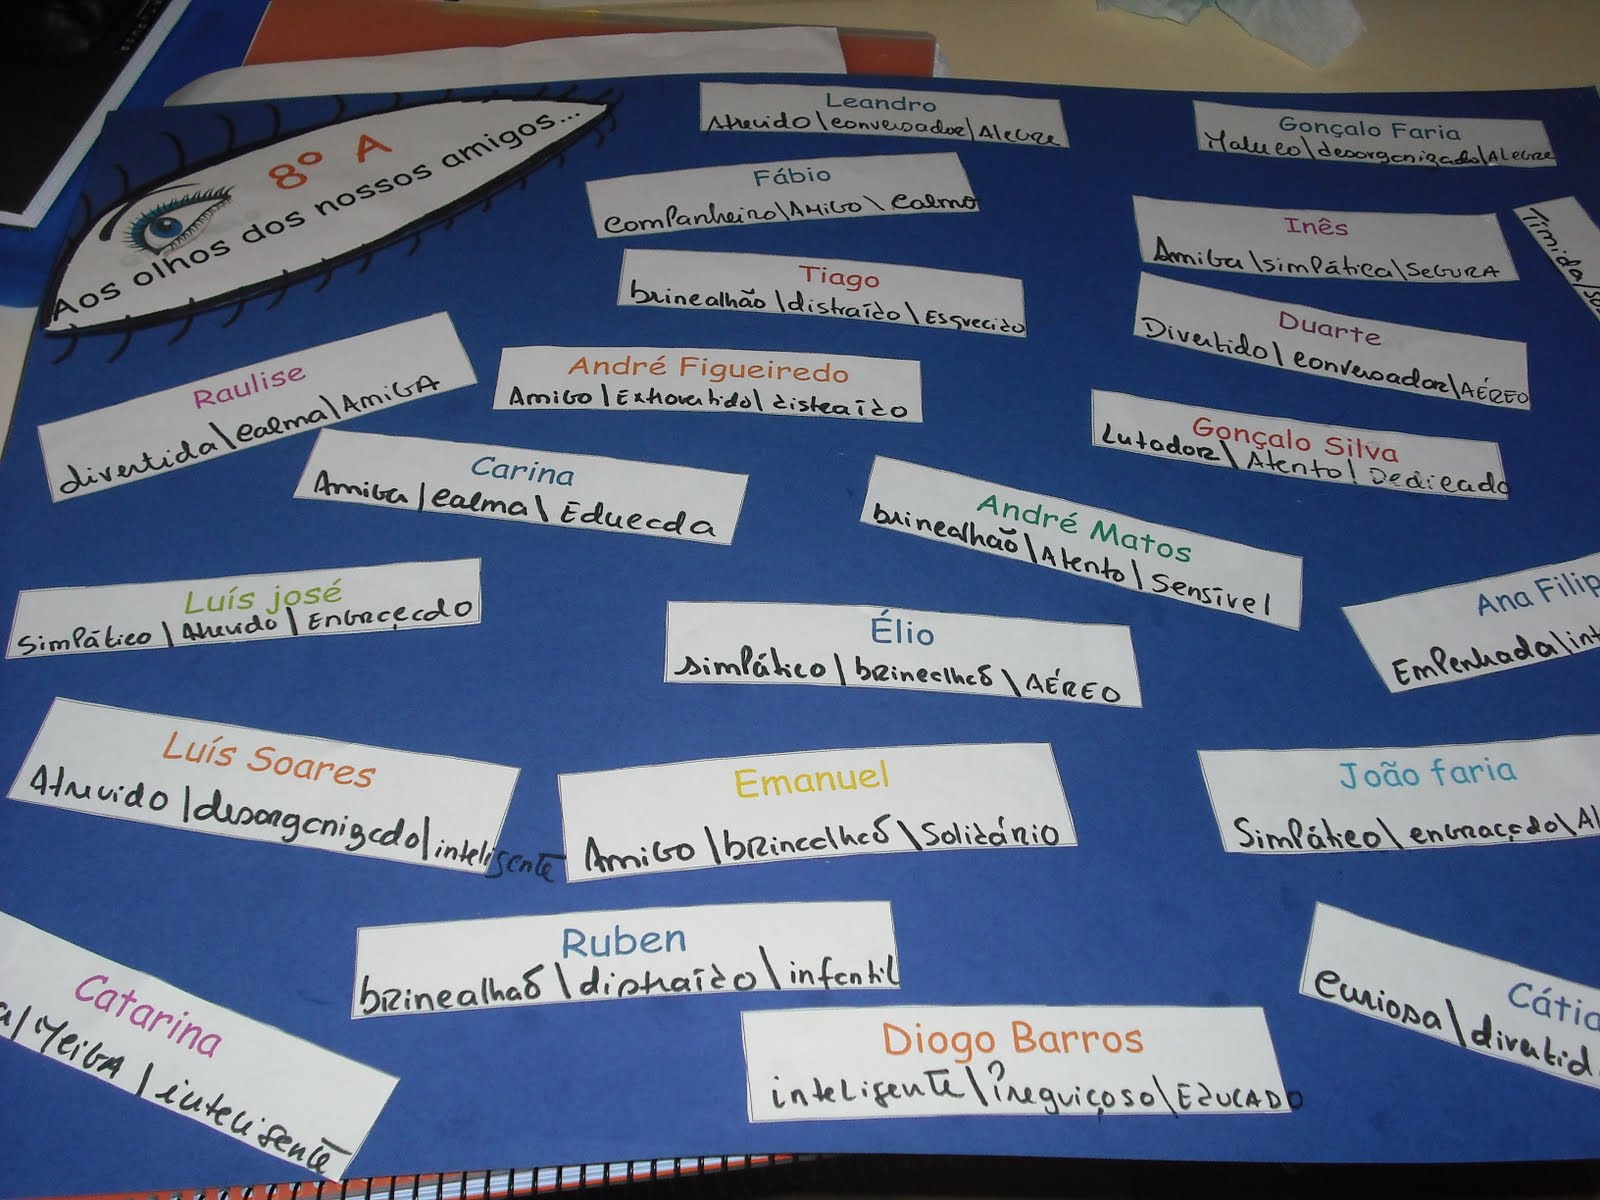 8º A
Aos olhos dos nossos amigos...
Leandro
Atrevido\conversador/Alegre
Gonçalo Faria
Maluco\desorganizado\Alegre
Fábio
companheiro\AMiGO\calmo
Inês
Amiga\simpática\SEGURA
Tímida/
Tiago
brincalhão\distraído\Esquecido
Duarte
Divertido\conversador\AÉREO
Raulise
divertida\calma\AMiGA
André Figueiredo
Amigo\Extrovertido\distraído
Gonçalo Silva
Lutador\Atento\Dedicado
Carina
Amiga\calma\Educada
André Matos
brincalhão\Atento\Sensível
Luís josé
Simpático\Atrevido\Engraçado
Élio
simpático\brincalhão\AÉREO
Ana Filip
Empenhada\int
Luís Soares
Atrevido\desorganizado\inteligente
Emanuel
Amigo\brincalhão\Solitário
João faria
Simpático\engraçado\Al
Ruben
brincalhão\distraído\infantil
Catarina
a/Meiga/inteligente
Cátia
curiosa\divertid
Diogo Barros
inteligente\Preguiçoso\EDUCADO